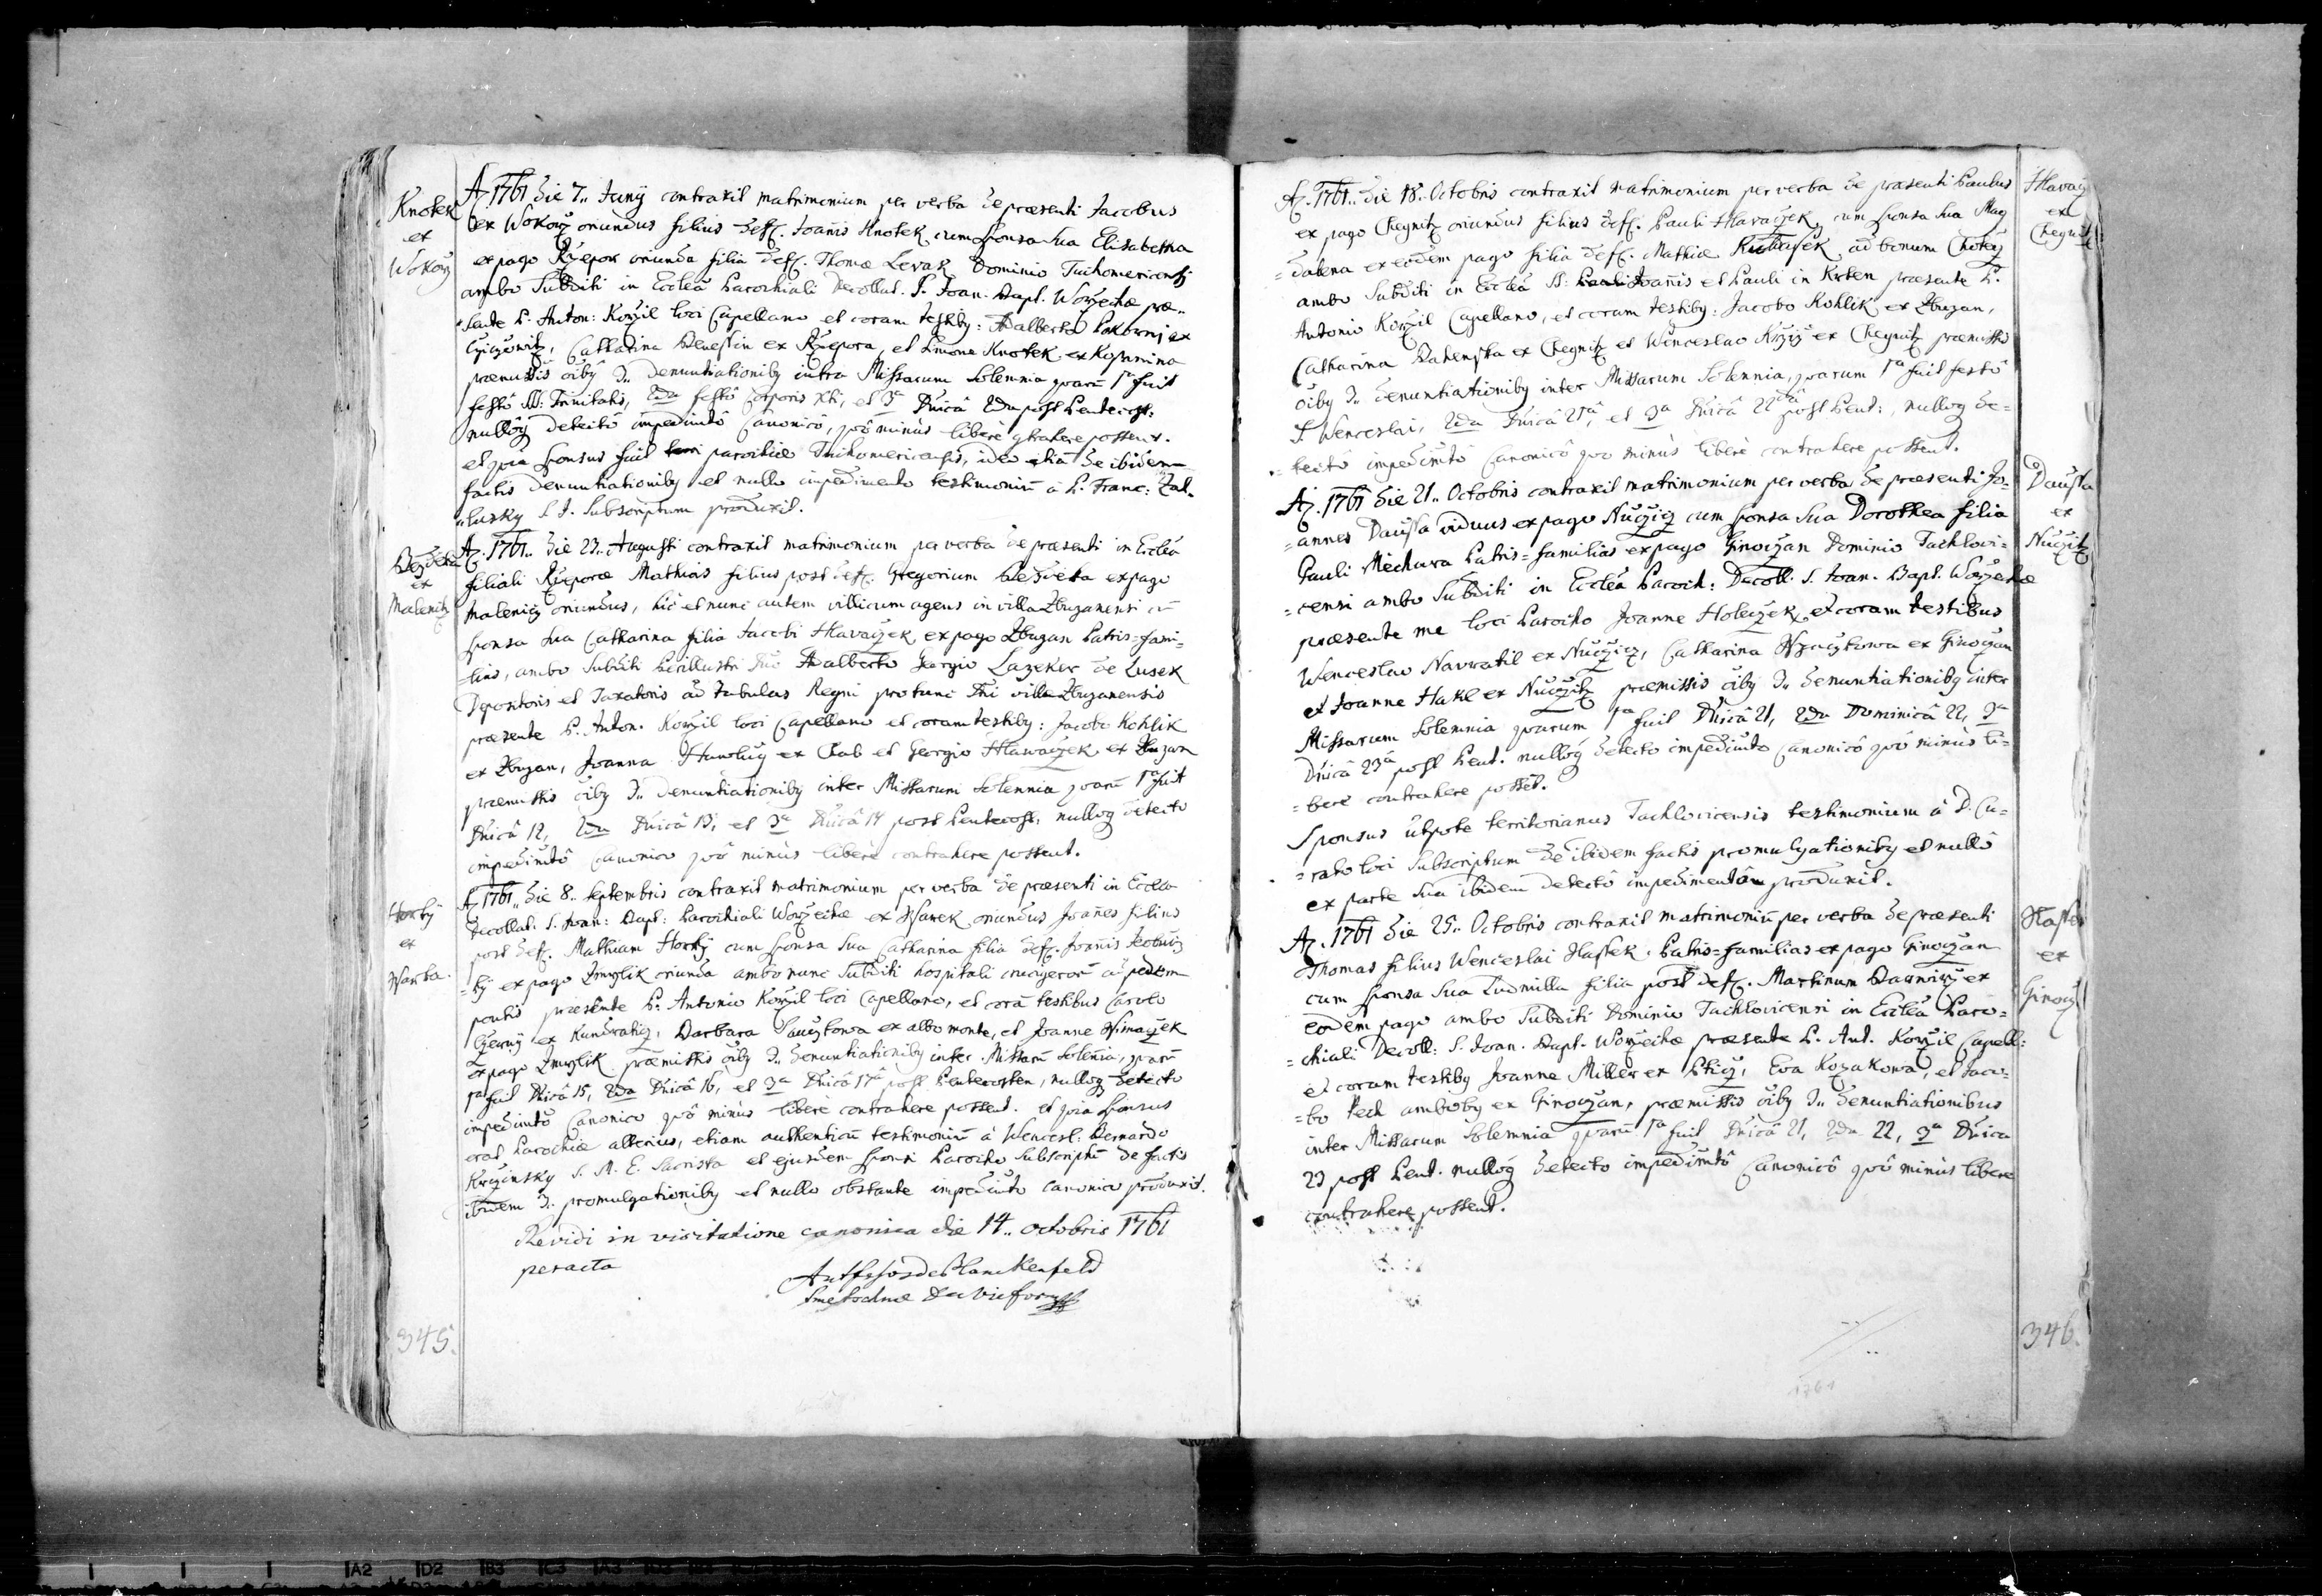 Knotek
ex
Wokorz
A: 1761 die 7.. Junij contraxit matrimonium per verba de praesenti Jacobus
ex Wokorz oriundus filius deff. Joañis Knotek cum sponsa sua Elisabetha
ex pago Rzepor oriunda filia deff. Thomae Levak Dominio Tuchomericensi
ambo Subditi in Ecclea Parochiali Decollat. S. Joan. Bapt. Worzechae prae-
sente P. Anton: Korzil loci Capellano et coram testiby: Adalberto Pokornj ex
Catharina ex Rzepora, et Simone Knotek ex
praemissis oiby 3.. denuntiationiby intra Missarum Solemnia quarũ 1a fuit
festô SS: Trinitatis, 2da festô Corporis Xti, et 3a Dnicâ 2da post Pentecost:
nulloq detectô impedimtô Canonicô, quô minùs liberè contrahere possent.
et quia sponsus fuit parochiae Tuchomericensis, ideo etiã de ibidem
factis denuntiationiby et nullo impedimento testimoniũ à P. Franc: Zal-
lusky S. J. Subscriptum produxit.
Bezdieka
ex
Malenitz
A: 1761.. die 23.. Augusti contraxit matrimonium per verba de praesenti in Ecclea
filiali Rzeporae Mathias filius post deff. Gregorium Bezdieka ex pago
Malenicz oriundus, hic et nunc autem villicum agens in villa Zbuzanensi cũ
sponsa sua Catharina filia Jacobi Hlavaczek ex pago Zbuzan Patris=fami=
=lias, ambo Subditi Perillustri Dno Adalberto Georgio Lazeker de Lusek
Depositoris et Taxatoris ad tabulas Regni pro tunc Dni villae Zbuzanensis
praesente P. Anton. Korzil loci Capellano et coram testiby: Jacobo Kohlik
ex Zbuzan, Joanna ex Chab et Georgio Hlawaczek ex Zbuzan
praemissis oiby 3.. denuntiationiby inter Missarum Solemnia quarũ 1a fuit
Dnicâ 12, 2da Dnicâ 13, et 3a Dnicâ 14 post Pentecost: nulloq detecto
impedimtô Canonico quô minùs liberè contrahere possent.
Horky
ex
Warka.
A: 1761.. die 8.. Septembris contraxit matrimonium per verba de praesenti in Ecclea
Decollat. S. Joan: Bapt: Parochiali Worzechae ex Warek oriundus Joañes filius
post deff. Mathiam Horkj cum sponsa sua Catharina filia deff. Joañis
=kj ex pago Zmyslik oriunda ambo nunc Subditi hospitali crucigerorũ ad pedem
pontis praesente P. Antonio Korzil loci Capellano, et corã testibus Carolo
Czernij ex Kundratiz, Barbara ex albo monte, et Joanne Wimaczek
ex pago Zmyslik praemissis oiby 3.. denuntiationiby inter Missarũ Solemnia, quarũ
1a fuit Dnicâ 15, 2da Dnicâ 16, et 3a Dnicâ 17â post Pentecosten, nulloq detecto
impedimtô Canonico quô minùs liberè contrahere possent. et quia sponsus
erat Parochiae alterius, etiam authenticũ testimoniũ à Wencesl: Bernardo
S. M. E. Sacrista et ejusdem sponsi Parocho Subscriptũ de factis
ibidem 3.. promulgationiby et nullo obstante impedimto canonico produxit.
Revidi in visitatione canonica die 14.. octobris 1761
peracta
345.
A: 1761.. die 18.. Octobris contraxit matrimonium per verba de praesenti Paulus
ex pago Chegnitz oriundus filius deff. Pauli Hlavaczek, cum sponsa sua Mag
=dalena ex eôdem pago filia deff. Mathiae Kubasek ad bonum Chotecz
ambo Subditi in Ecclea SS: Joañis et Pauli in Krten praesente P.
Antonio Korzil Capellano, et coram testiby: Jacobo Kohlik ex Zbuzan,
Catharina ex Chegnitz et Wenceslao Krziz ex Chegnitz praemissis
oiby 3.. denuntiationiby inter Missarum Solemnia, quarum 1a fuit festô
S. Wenceslai, 2da Dnicâ 21â, et 3a Dnicâ 22dâ post Pent:, nulloq de=
=tectô impedimtô Canonicô quo minùs liberè contrahere possent.
Hlavacz
ex
Chegnitz
A: 1761 die 21.. Octobris contraxit matrimonium per verba de praesenti Jo=
=annes Daussa viduus ex pago Nučziz cum sponsa sua Dorothea filia
Pauli Mechura Patris=familias ex pago Ginoczan Dominio Tachlovi=
=censi ambo Subditi in Ecclea Paroch: Decoll. S. Joan. Bapt. Worzechae
praesente me loci Parocho Joanne Holeczek, et coram testibus
Wenceslao Navratil ex Nucziz, Catharina ex Ginoczan
et Joanne Hakl ex Nuczitz praemissis oiby 3.. denuntiationiby inter
Missarum Solemnia quarum 1a fuit Dnicâ 21, 2da Dominicâ 22, 3a
Dnicâ 23â post Pent. nulloq detecto impedimto Canonicô quô minùs li=
=bere contrahere possẽt.
Sponsus utpote territorianus Tachlovicensis testimonium à D. Cu=
=rato loci Subscriptum de ibidem factis promulgationiby et nullô
ex parte sua ibidem detectô impedimentô produxit.
Daussa
ex
Nuczitz
A: 1761 die 25.. Octobris contraxit matrimoniũ per verba de praesenti
Thomas filius Wenceslai Hassek Patris=familias ex pago Ginoczan
cum sponsa sua Ludmilla filia post deff. Martinum ex
eodem pago ambo Subditi Dominio Tachlovicensi in Ecclea Paro=
=chiali Decoll: S. Joan. Bapt. Worzechae praesente P. Ant. Korzil Capell:
et coram testiby Joanne Miller ex Pticz, Eva Kozakowa, et Jaco=
=bo Pech ambôby ex Ginoczan, praemissis oiby 3.. denuntiationibus
inter Missarum Solemnia quarũ 1a fuit Dnicâ 21, 2da 22, 3a Dnica
23 post Pent. nulloq detecto impedimtô Canonicô quô minùs libere
contrahere possent.
Hassek
ex
Ginocz
346.
1761